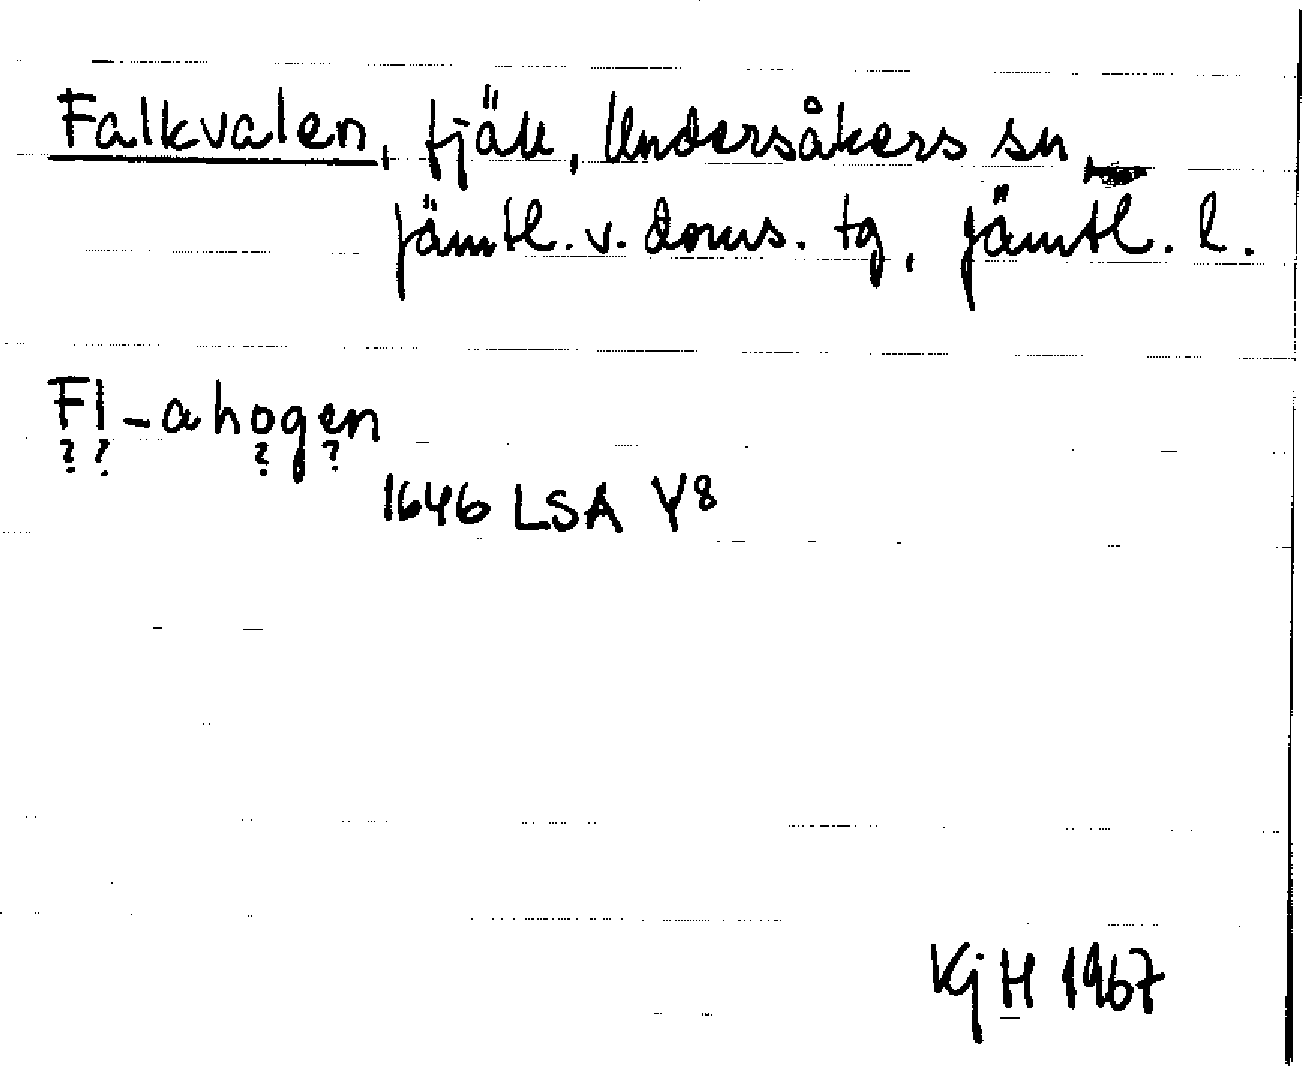 Falkvalen, fjäll, Undersåkers sn
Jämtl. v. doms. tg, Jämtl. l.
Fl-ahogen
? ? ? ?
1646 LSA Y8
KjH 1967